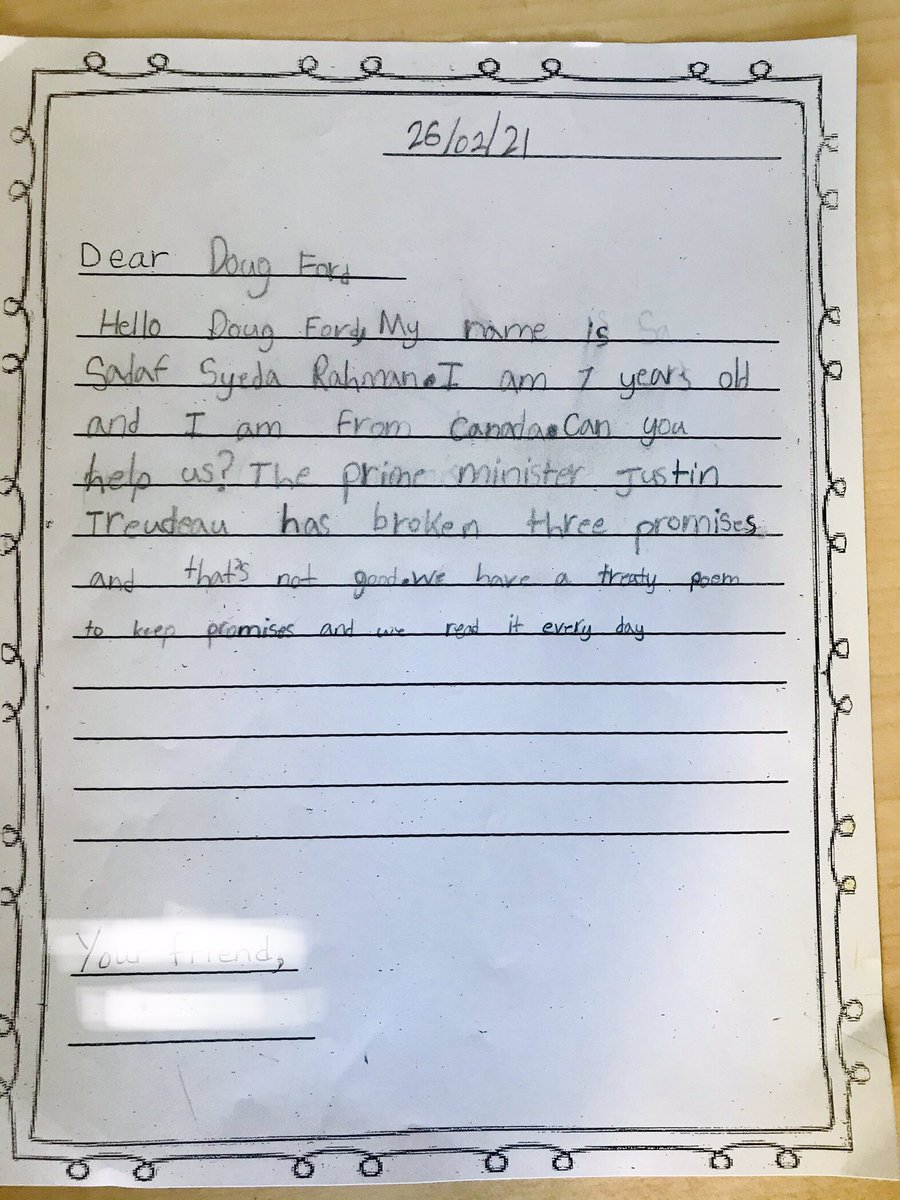 26/02/21
Dear Doug Ford
Hello Doug Ford, My name is
Sadaf Syeda Rahman. I am 7 years old
and I am from Canada. Can you
help us? The prime minister Justin
Treudeau has broken three promises
and that's not good. We have a treaty poem
to keep promises and we read it every day
Your friend,